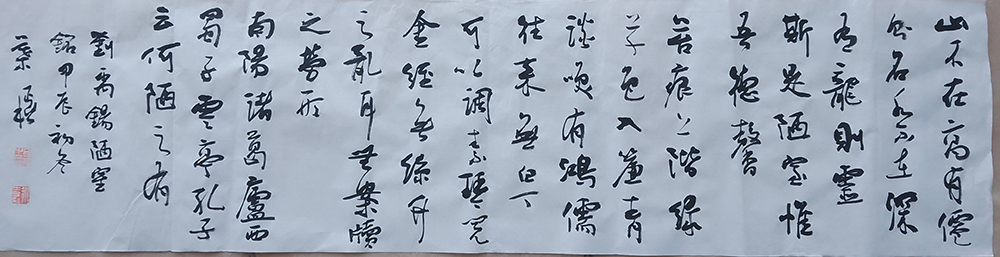 山不在高有僊
则名水不在深
有龍則靈
斯是陋室惟
吾德馨
苔痕上階綠
草色入簾青
談咲有鴻儒
往来無白丁
可以調素琴閱
金經無絲竹
之亂耳無案牘
之勞形
南陽諸葛廬西
蜀子雲亭孔子
云何陋之有
劉禹錫陋室
銘甲辰初冬